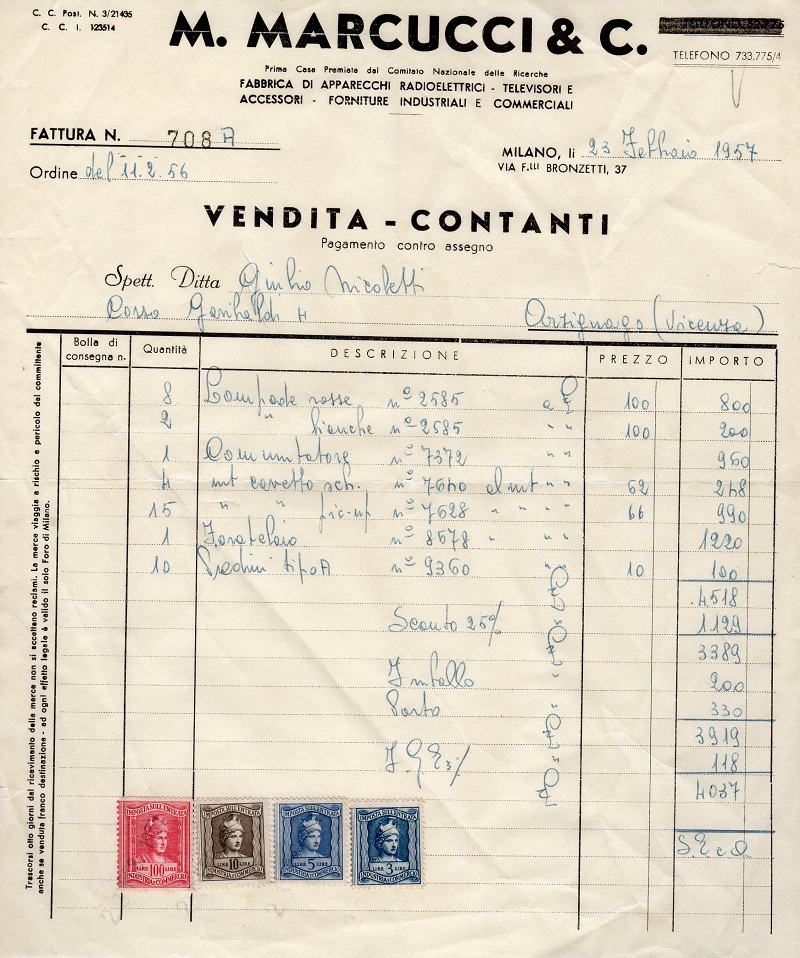 C. C. Post. N. 3/21435
C. C. I. 123514
M. MARCUCCI & C.
TELEFONO 733.775/4
Prima Casa Premiata dal Comitato Nazionale delle Ricerche
FABBRICA DI APPARECCHI RADIOELETTRICI - TELEVISORI E
ACCESSORI - FORNITURE INDUSTRIALI E COMMERCIALI
FATTURA N. 708 A
MILANO, li 23 Febbraio 1957
VIA F.lli BRONZETTI, 37
Ordine del 11.2.56
VENDITA - CONTANTI
Pagamento contro assegno
Spett. Ditta Giulio Nicoletti
Corso Garibaldi 4 Arzignago (Vicenza)
Bolla di consegna n. Quantità DESCRIZIONE PREZZO IMPORTO
8 Lampade rosse n° 2585 a £ 100 800
2 " bianche n° 2585 " " 100 200
1 Commutatore n° 7372 " " 960
4 mt cavetto sch. n° 7640 al mt " " 62 248
15 " " pic-up n° 7628 " " " " 66 990
1 n° 8578 " " " 1220
10 tipo A n° 9360 " " 10 100
4518
Sconto 25% " 1129
3389
Imballo " 200
Porto " 330
3919
I.G.E 3% " 118
4037
S.E e O.
Trascorsi otto giorni dal ricevimento della merce non si accettano reclami. La merce viaggia a rischio e pericolo del committente
anche se venduta franco destinazione - ad ogni effetto legale è valido il solo Foro di Milano.
IMPOSTA SULL'ENTRATA
LIRE 100 LIRE
INDUSTRIA E COMMERCIO
IMPOSTA SULL'ENTRATA
LIRE 10 LIRE
INDUSTRIA E COMMERCIO
IMPOSTA SULL'ENTRATA
LIRE 5 LIRE
INDUSTRIA E COMMERCIO
IMPOSTA SULL'ENTRATA
LIRE 3 LIRE
INDUSTRIA E COMMERCIO